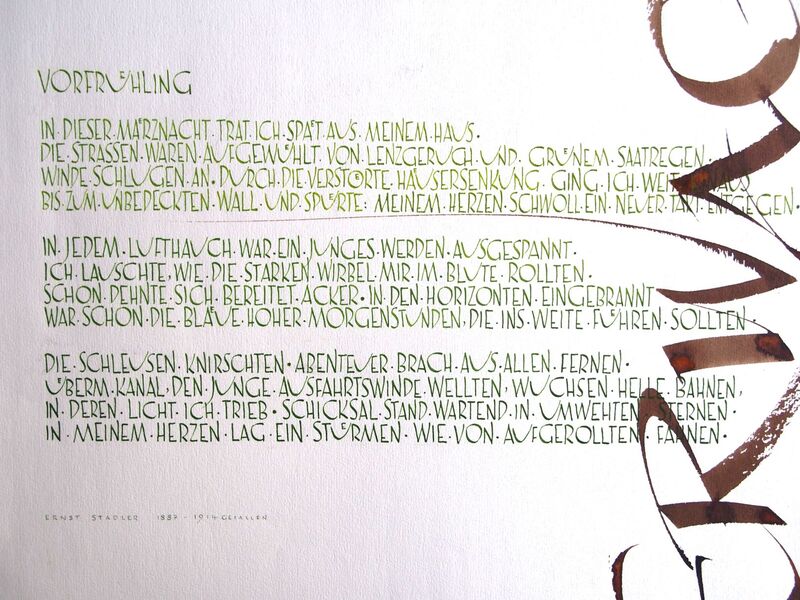 VORFRUEHLING
IN·DIESER·MAERZNACHT·TRAT·ICH·SPAET·AUS·MEINEM·HAUS·
DIE·STRASSEN·WAREN·AUFGEWUEHLT·VON·LENZGERUCH·UND·GRUENEM·SAATREGEN·
WINDE·SCHLUGEN·AN·DURCH·DIE·VERSTOERTE·HAEUSERSENKUNG·GING·ICH·WEIT·HINAUS
BIS·ZUM·UNBEDECKTEN·WALL·UND·SPUERTE: MEINEM·HERZEN·SCHWOLL·EIN·NEUER·TAKT·ENTGEGEN·
IN·JEDEM·LUFTHAUCH·WAR·EIN·JUNGES·WERDEN·AUSGESPANNT·
ICH·LAUSCHTE, WIE·DIE·STARKEN·WIRBEL·MIR·IM·BLUTE·ROLLTEN·
SCHON·DEHNTE·SICH·BEREITET·ACKER·IN·DEN·HORIZONTEN·EINGEBRANNT
WAR·SCHON·DIE·BLAEUE·HOHER·MORGENSTUNDEN, DIE·INS·WEITE·FUEHREN·SOLLTEN·
DIE·SCHLEUSEN·KNIRSCHTEN·ABENTEUER·BRACH·AUS·ALLEN·FERNEN·
UEBERM·KANAL, DEN·JUNGE·AUSFAHRTSWINDE·WELLTEN, WUCHSEN·HELLE·BAHNEN,
IN·DEREN·LICHT·ICH·TRIEB·SCHICKSAL·STAND·WARTEND·IN·UMWEHTEN·STERNEN·
IN·MEINEM·HERZEN·LAG·EIN·STUERMEN·WIE·VON·AUFGEROLLTEN·FAHNEN·
ERNST STADLER 1883 - 1914 GEFALLEN